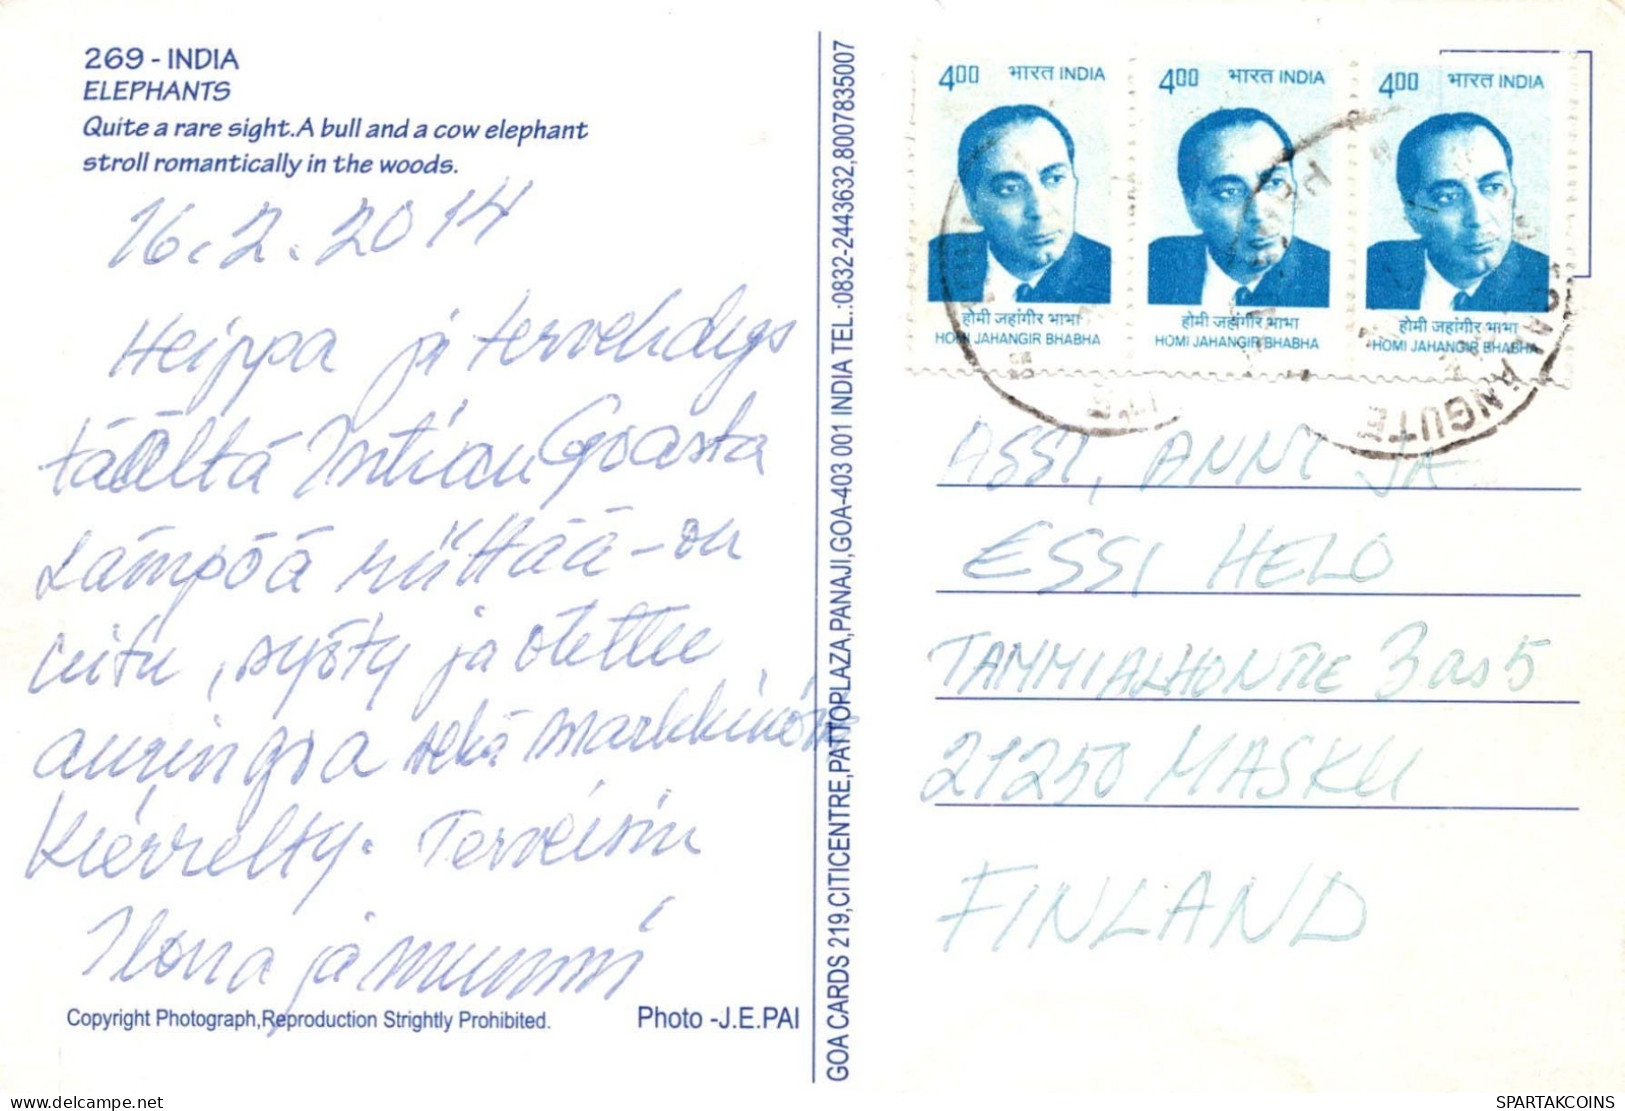 269 - INDIA
ELEPHANTS
Quite a rare sight.A bull and a cow elephant
stroll romantically in the woods.
16.2.2014
Heippa ja tervehdys
täältä Intian Goasta
Lämpöä riittää - on
uitu, syöty ja otettu
aurinkoa sekä markkinoita
kierrelty. Terveisin
Ilona ja mummi
Copyright Photograph,Reproduction Strightly Prohibited.
Photo -J.E.PAI
GOA CARDS 219,CITICENTRE,PATTOPLAZA,PANAJI,GOA-403 001 INDIA TEL.:0832-2443632,8007835007
400 भारत INDIA
होमी जहांगीर भाभा
HOMI JAHANGIR BHABHA
400 भारत INDIA
होमी जहांगीर भाभा
HOMI JAHANGIR BHABHA
400 भारत INDIA
होमी जहांगीर भाभा
HOMI JAHANGIR BHABHA
ASSI, ANNI JA
ESSI HELO
TAMMIALHONTIE 3 as 5
21250 MASKU
FINLAND
SPARTAKCOINS